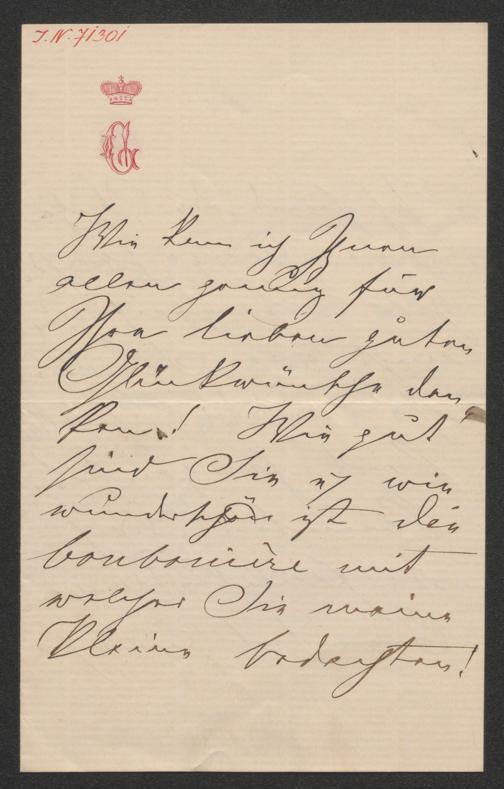 J. N. 71301
Wie kann ich Ihnen
allen genug für
Ihre lieben guten
Glückwünsche dan
ken! Wie gut
sind Sie u wie
wunderschön ist die
bonboniére mit
welcher Sie meine
Kleine bedachten!